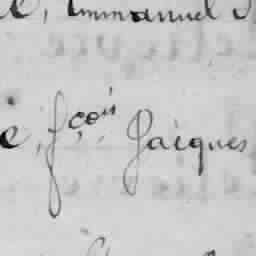 e, Emmanuel
e, fçois Jacques